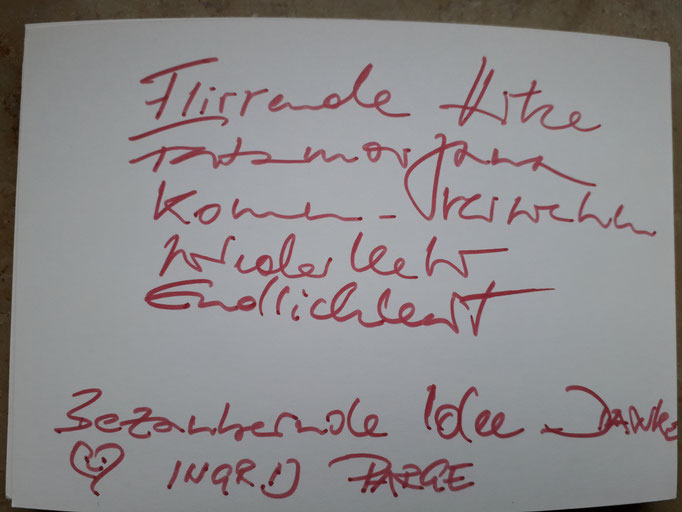 Flirrende Hitze
Fatamorgana
Kommen - Verwehen
Wiederkehr
Endlichkeit
Bezaubernde Idee - DANKE
INGRID